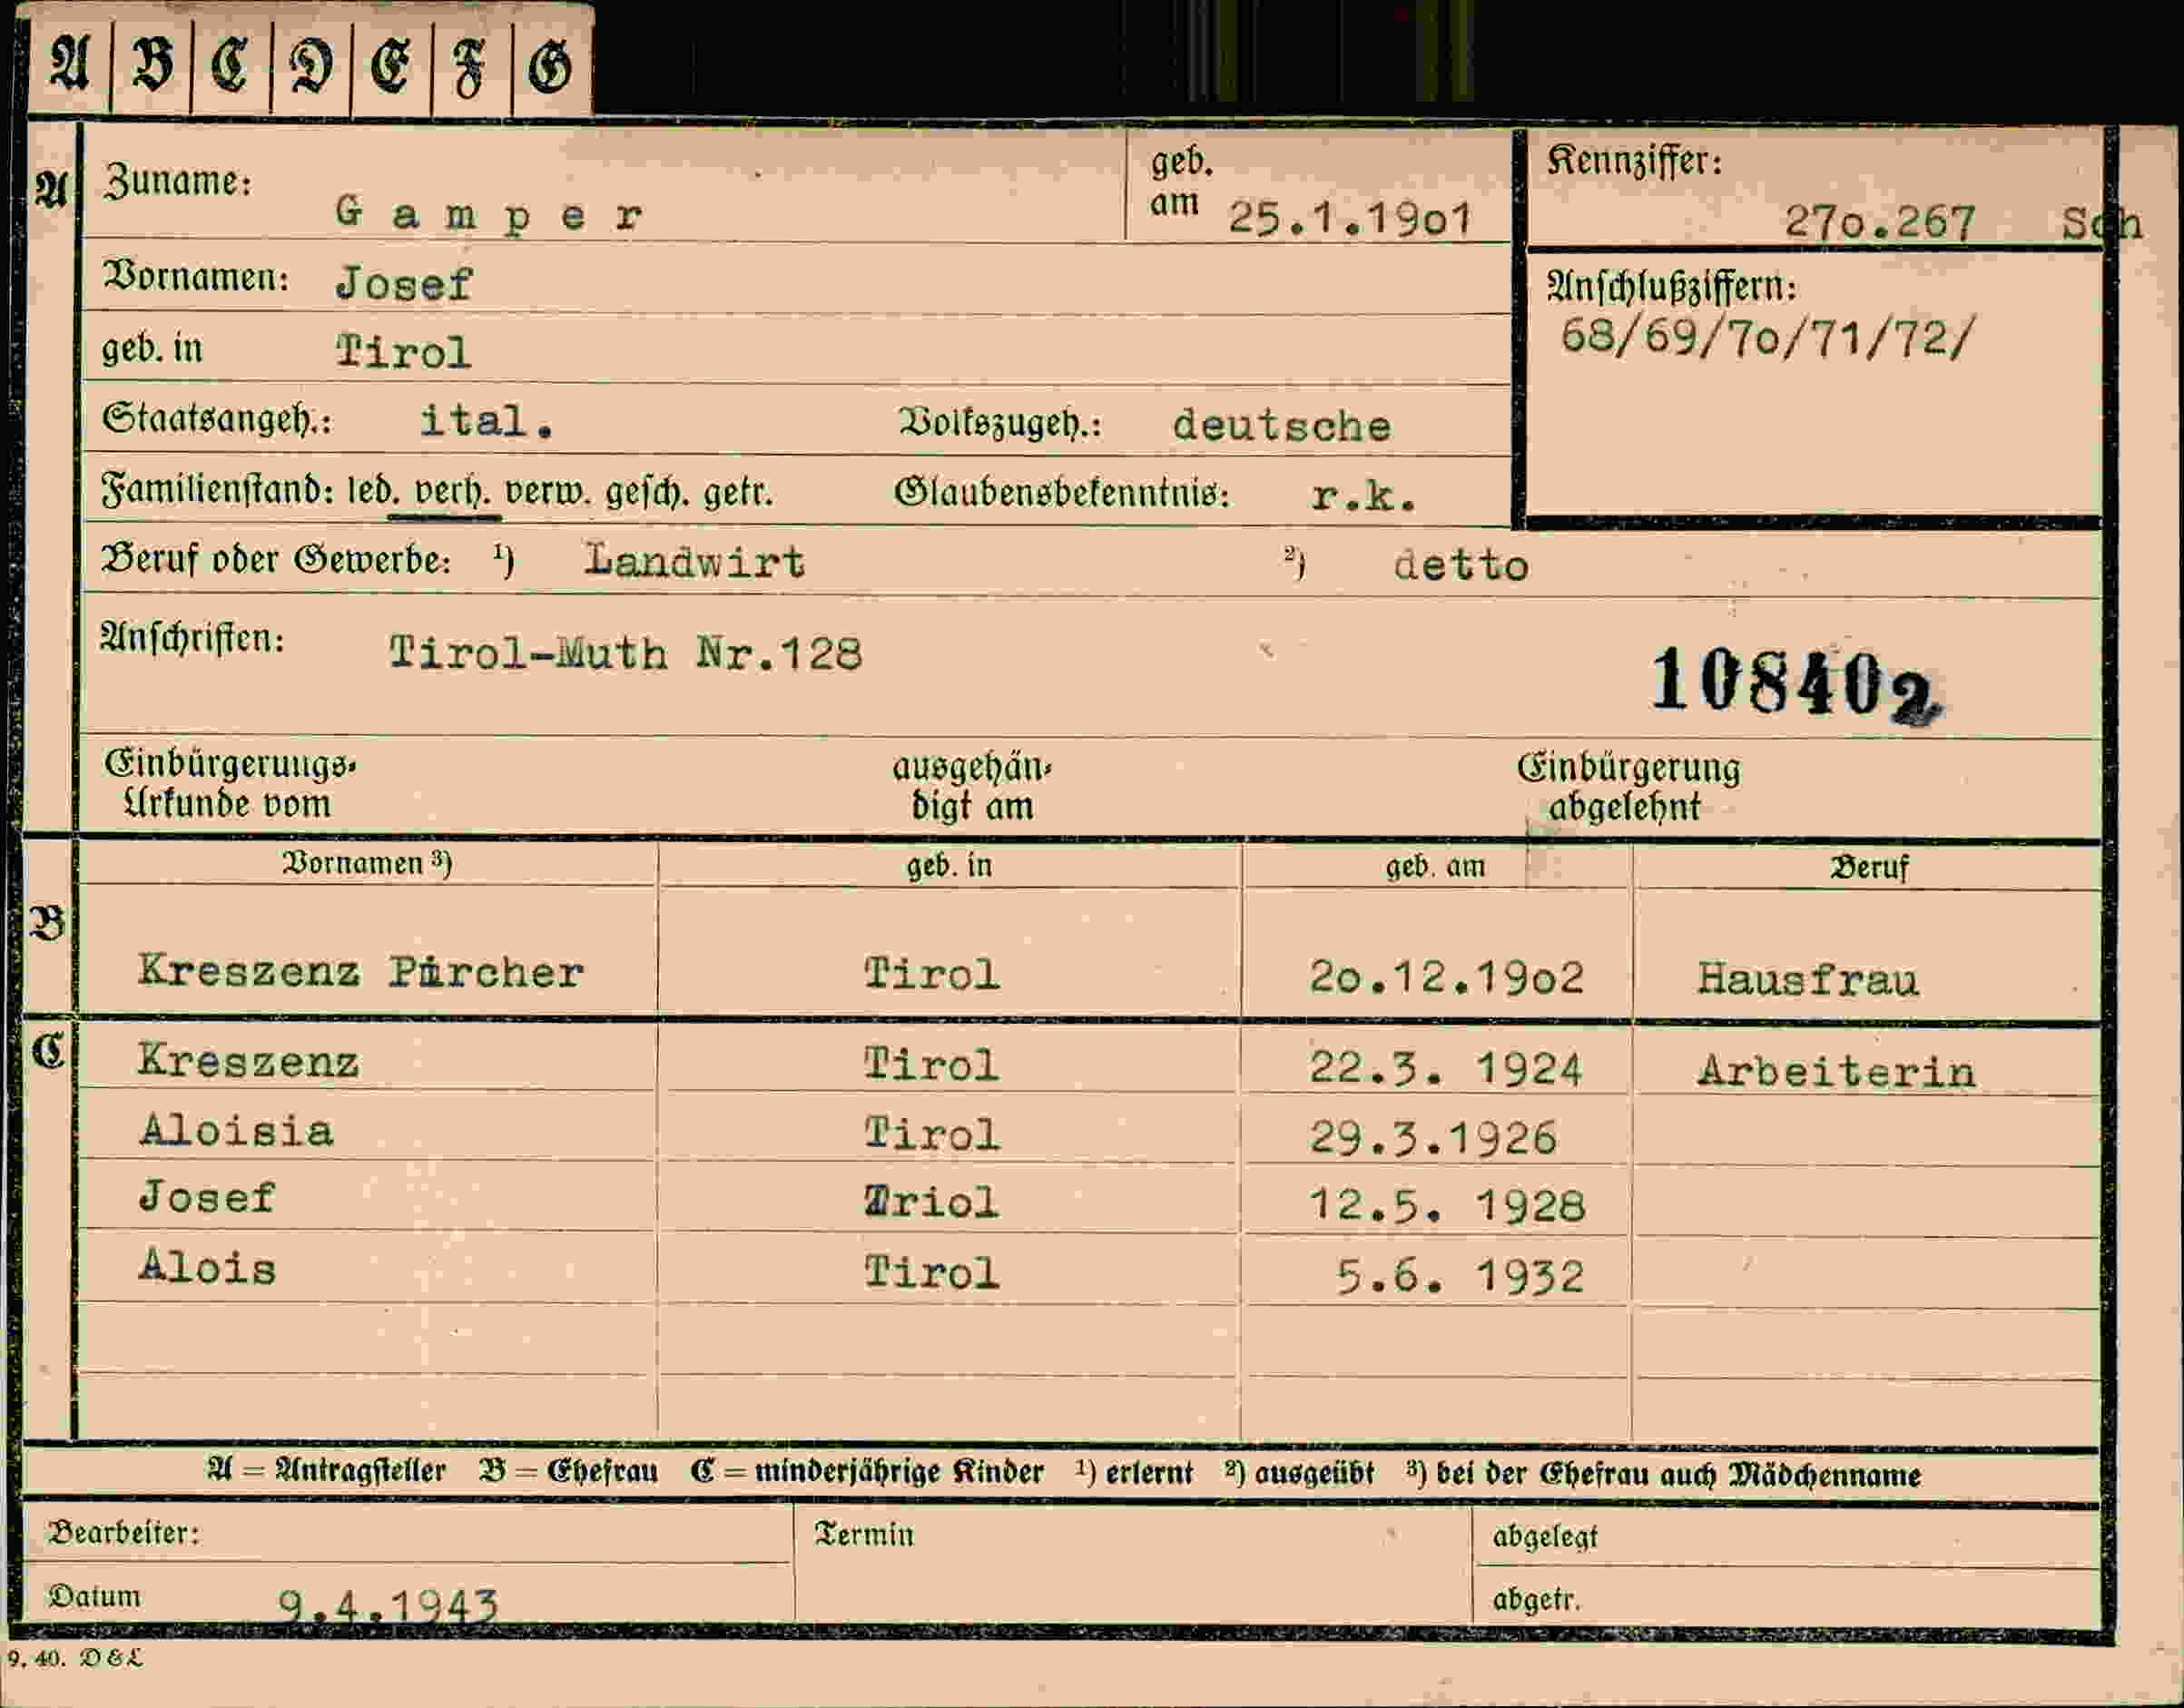 A B C D E F G
A Zuname: Gamper geb. am 25.1.19o1 Kennziffer: 27o.267 Sch
Vornamen: Josef
Anschlußziffern:
68/69/7o/71/72/
geb. in Tirol
Staatsangeh.: ital. Volkszugeh.: deutsche
Familienstand: led. verh. verw. gesch. getr. Glaubensbekenntnis: r.k.
Beruf oder Gewerbe: ¹) Landwirt ²) detto
Anschriften: Tirol-Muth Nr.128
108402
Einbürgerungs- ausgehän- Einbürgerung
Urkunde vom digt am abgelehnt
Vornamen ³) geb. in geb. am Beruf
B
Kreszenz Pircher Tirol 2o.12.19o2 Hausfrau
C Kreszenz Tirol 22.3. 1924 Arbeiterin
Aloisia Tirol 29.3.1926
Josef Triol 12.5. 1928
Alois Tirol 5.6. 1932
A = Antragsteller B = Ehefrau C = minderjährige Kinder ¹) erlernt ²) ausgeübt ³) bei der Ehefrau auch Mädchenname
Bearbeiter: Termin abgelegt
Datum 9.4.1943 abgetr.
9. 40. D & L